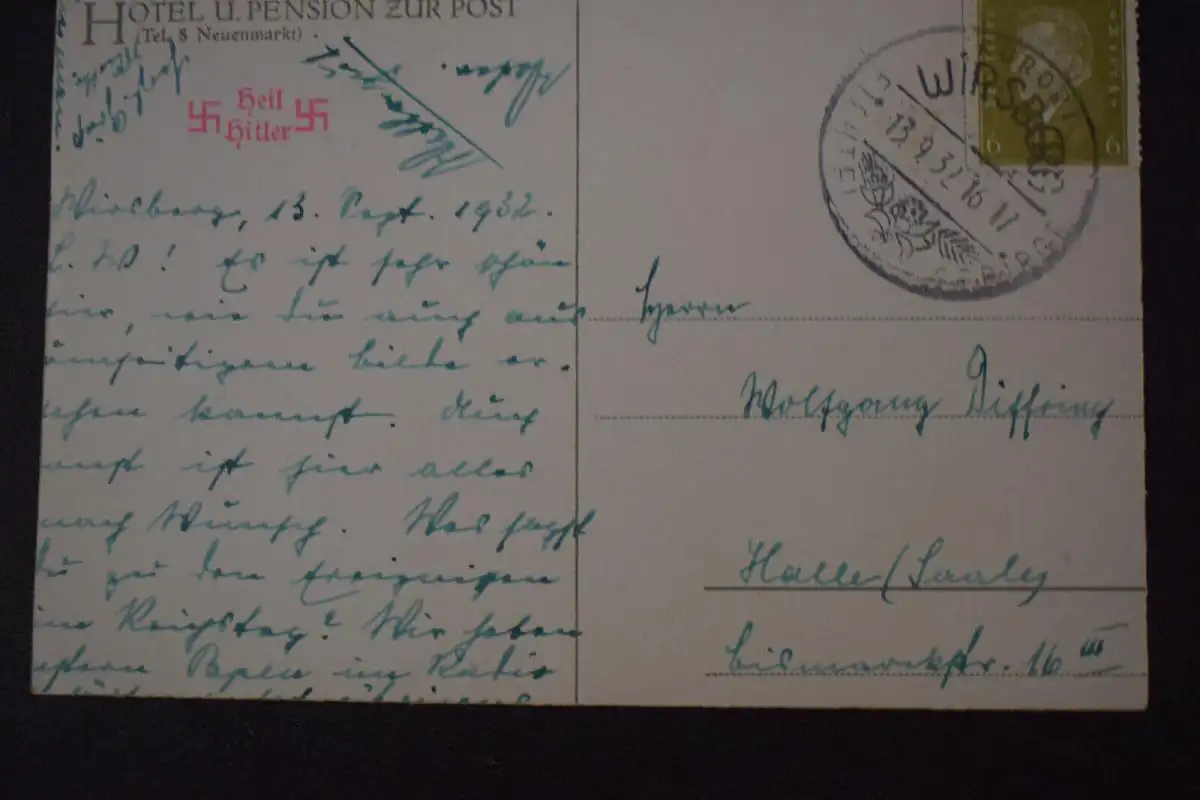 HOTEL U. PENSION ZUR POST
(Tel. 8 Neuenmarkt)
Heil
Hitler
Wirsberg, 13. Sept. 1932.
L. W! Es ist sehr schön
hier, wie du auch aus
umseitigem Bilde er-
sehen kannst. Auch
sonst ist hier alles
nach Wunsch. Was sagst
du zu den Ereignissen
im Reichstag? Wir haben
gestern Papen im Radio
WIRSBERG
13.9.32 16-17
6 6
Herrn
Wolfgang Diffring
Halle (Saale)
Bismarckstr. 16 III